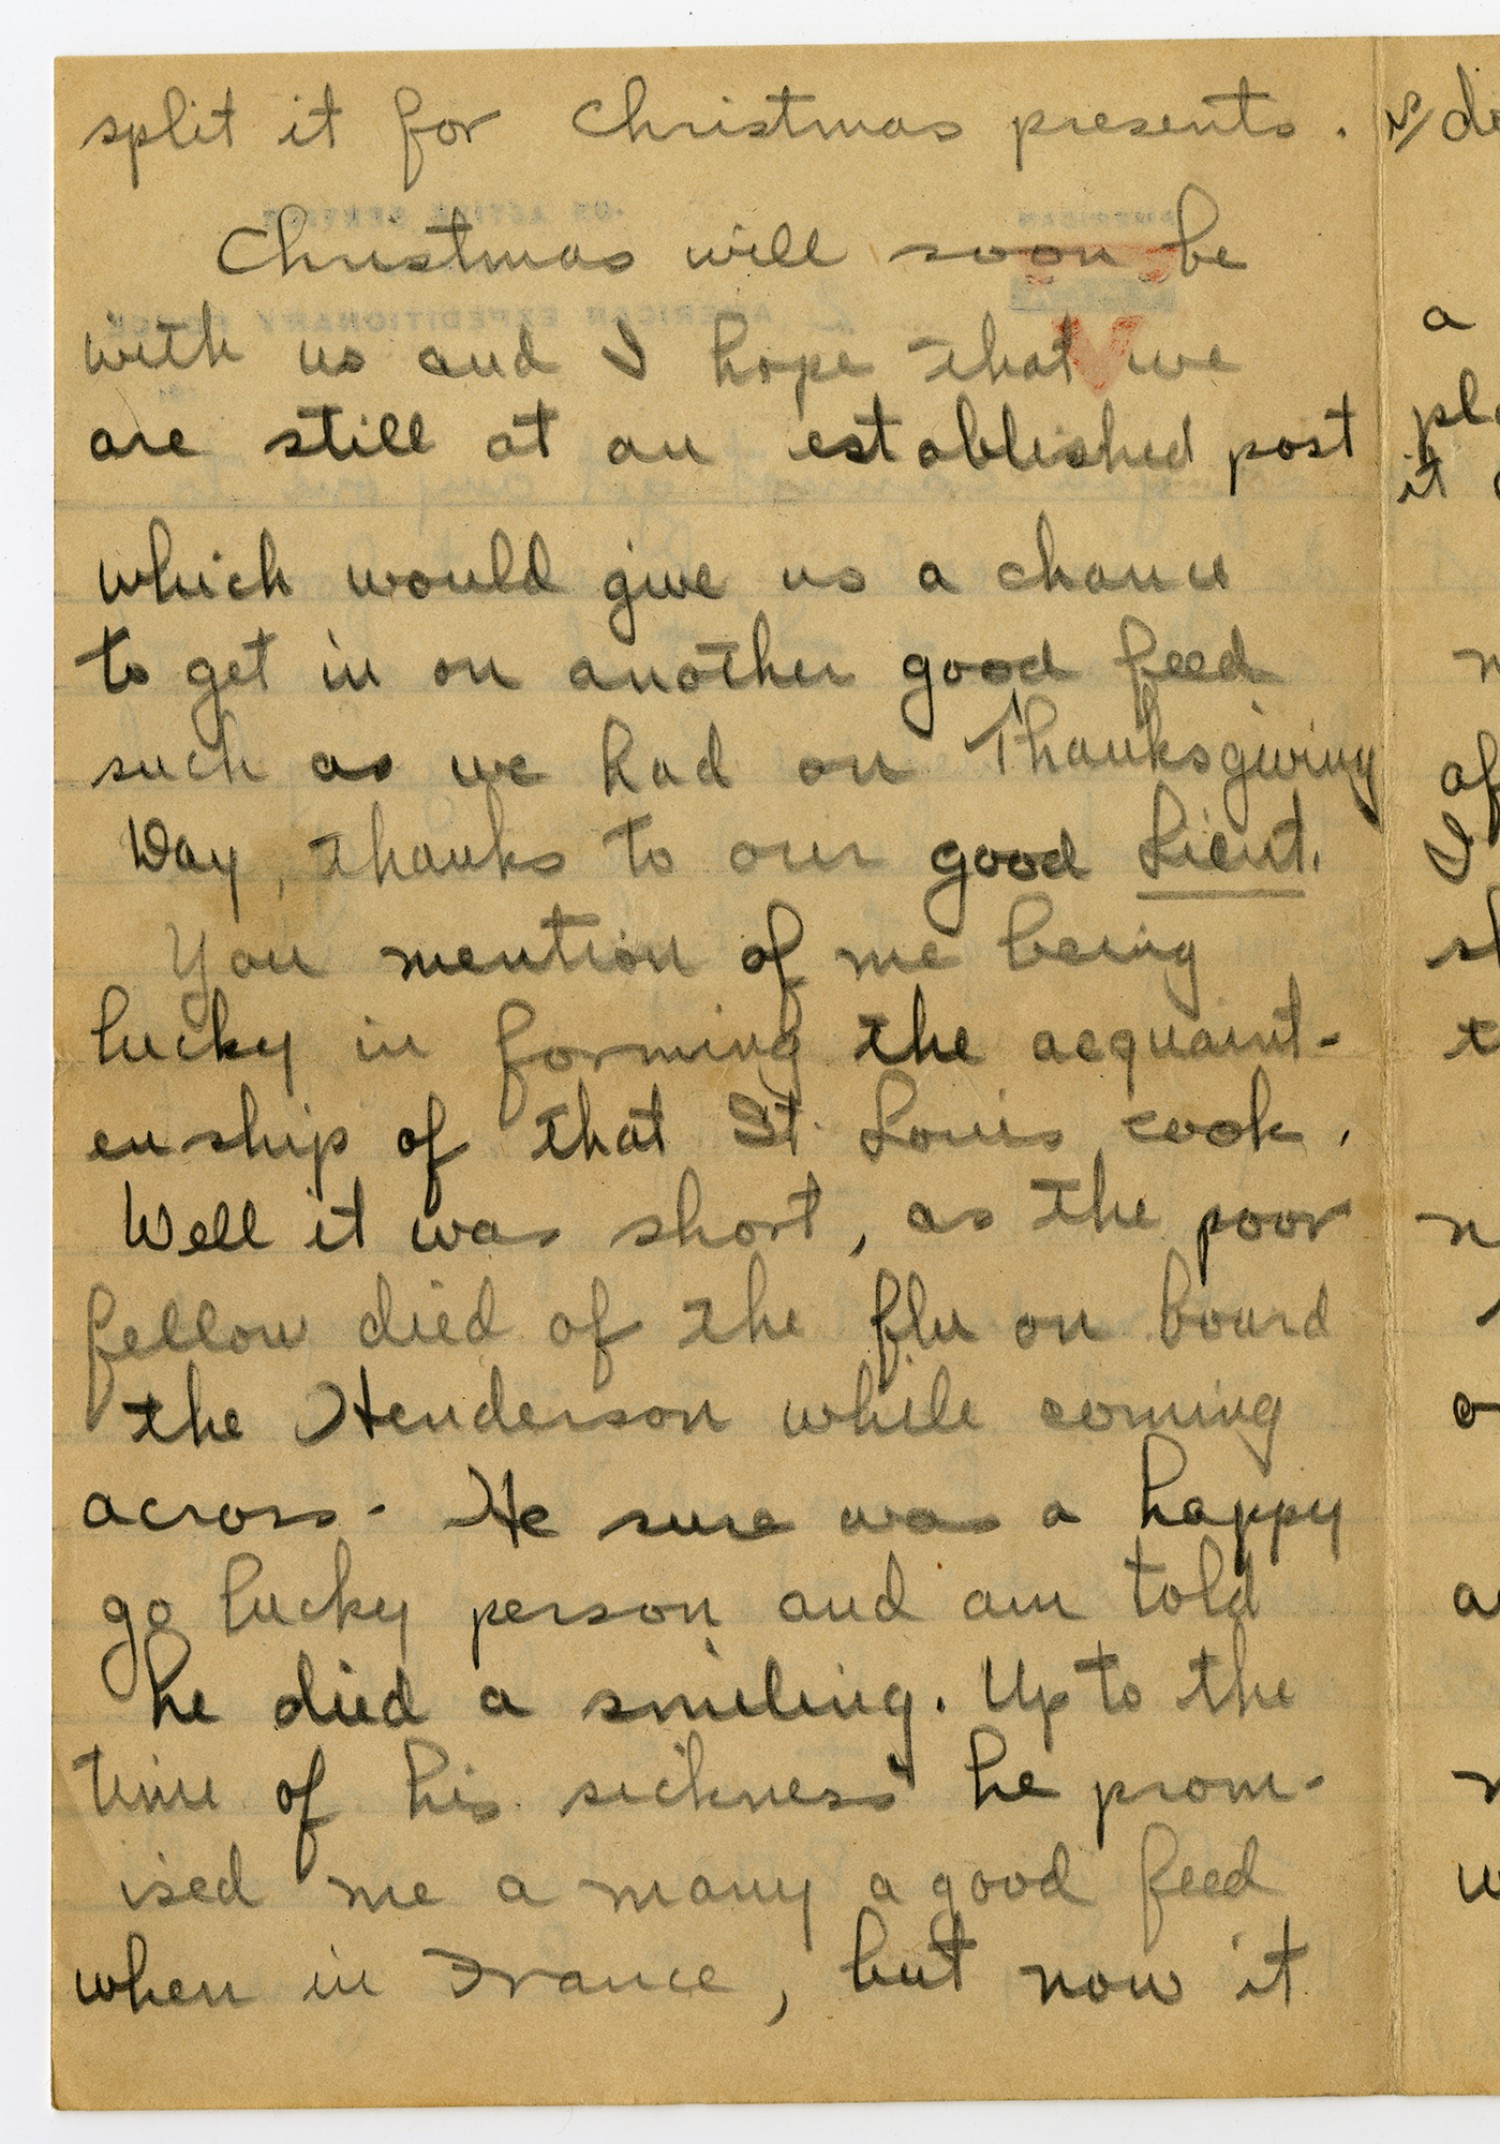 split it for Christmas presents.
Christmas will soon be
with us and I hope that we
are still at an established post
which would give us a chance
to get in on another good feed
such as we had on Thanksgiving
Day, thanks to our good Lieut.
You mention of me being
lucky in forming the acquaint-
enship of that St. Louis cook.
Well it was short, as the poor
fellow died of the flu on board
the Henderson while coming
across. He sure was a happy
go lucky person and am told
he died a smiling. Up to the
time of his sickness he prom-
ised me a many a good feed
when in France, but now it
a
it
I